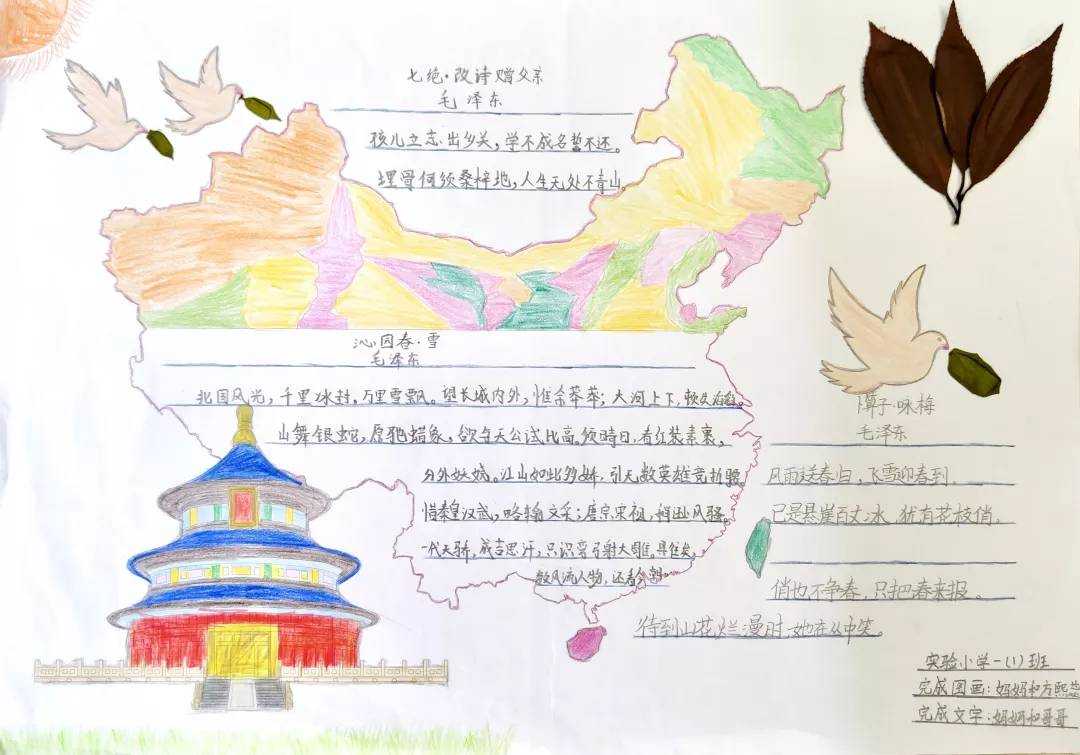 七绝·改诗赠父亲
毛泽东
孩儿立志出乡关，学不成名誓不还。
埋骨何须桑梓地，人生无处不青山。
沁园春·雪
毛泽东
北国风光，千里冰封，万里雪飘。望长城内外，惟余莽莽；大河上下，顿失滔滔。
山舞银蛇，原驰蜡象，欲与天公试比高。须晴日，看红装素裹，
分外妖娆。江山如此多娇，引无数英雄竞折腰。
惜秦皇汉武，略输文采；唐宗宋祖，稍逊风骚。
一代天骄，成吉思汗，只识弯弓射大雕。俱往矣，
数风流人物，还看今朝。
卜算子·咏梅
毛泽东
风雨送春归，飞雪迎春到.
已是悬崖百丈冰，犹有花枝俏.
俏也不争春，只把春来报.
待到山花烂漫时，她在丛中笑.
实验小学一(1)班
完成图画：妈妈和方熙
完成文字：妈妈和哥哥